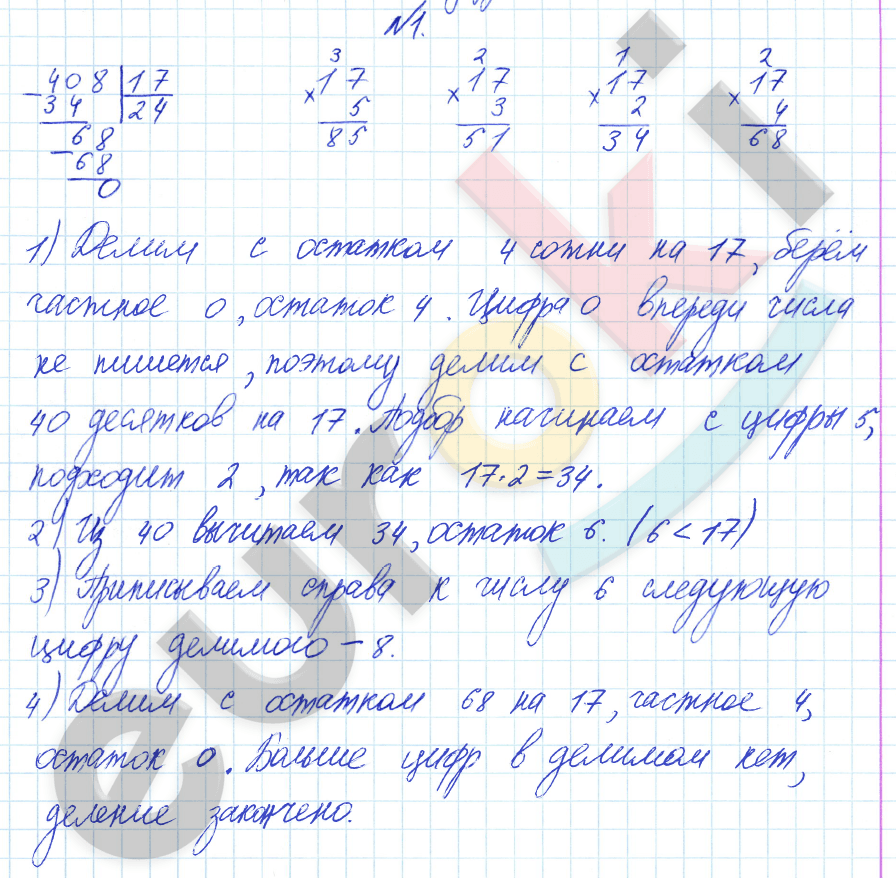 №1.
3 2 1 2
-408 | 17 ×17 ×17 ×17 ×17
34 24 5 3 2 4
68 85 51 34 68
-68
0
1) Делим с остатком 4 сотни на 17, берём
частное 0, остаток 4. Цифра 0 впереди числа
не пишется, поэтому делим с остатком
40 десятков на 17. Подбор начинаем с цифры 5,
подходит 2, так как 17·2=34.
2) Из 40 вычитаем 34, остаток 6. (6<17)
3) Приписываем справа к числу 6 следующую
цифру делимого – 8.
4) Делим с остатком 68 на 17, частное 4,
остаток 0. Больше цифр в делимом нет,
деление закончено.
euroki